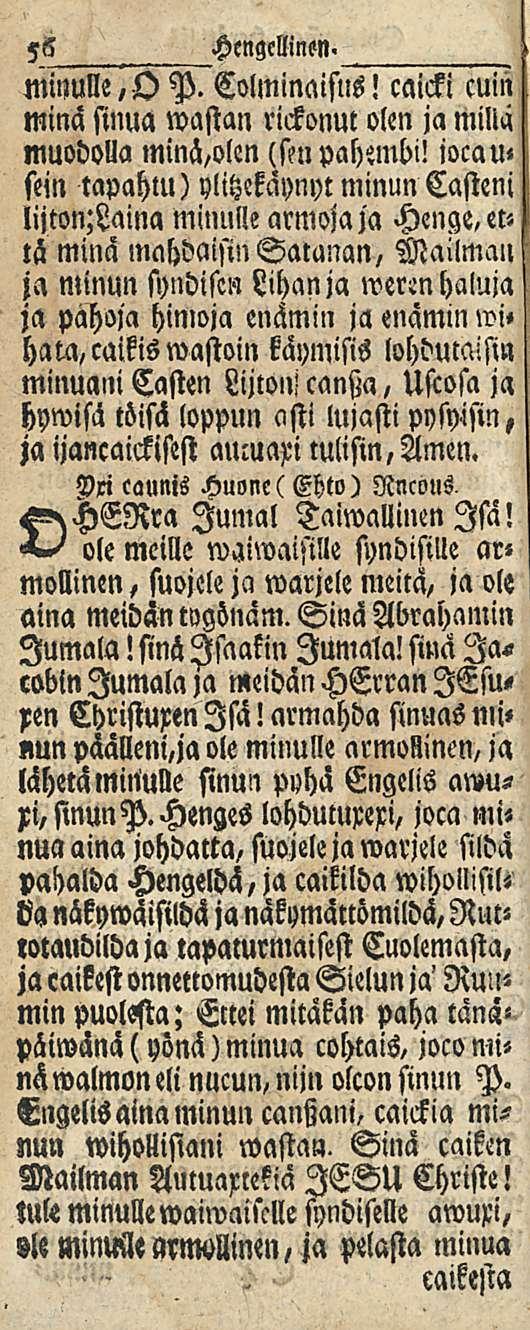 56 Hengellinen.
minulle, O P. Colminaisus! caicki cuin
minä sinua wastan rickonut olen ja millä
muodolla minä, olen (sen pahembi! joca u-
sein tapahtu) ylitzekäynyt minun Casteni
lijton; Laina minulle armoja ja Henge, et-
tä minä mahdaisin Satanan, Mailman
ja minun syndisen Lihan ja weren haluja
ja pahoja himoja enämin ja enämin wi-
hata, caikis wastoin käymisis lohdutaisin
minuani Casten Lijtonj canßa, Uscosa ja
hywisä töisä loppun asti lujasti pysyisin,
ja ijancaickisest autuaxi tulisin, Amen.
Yxi caunis Huone (Ehto) Rucous.
O HERra Jumal Taiwallinen Isä!
ole meille waiwaisille syndisille ar-
mollinen, suojele ja warjele meitä, ja ole
aina meidän tygönäm. Sinä Abrahamin
Jumala! sinä Isaakin Jumala! sinä Ja-
cobin Jumala ja meidän HErran JEsu-
xen Christuxen Isä! armahda sinuas mi-
nun päälleni, ja ole minulle armollinen, ja
lähetä minulle sinun pyhä Engelis awu-
xi, sinun P. Henges lohdutuxexi, joca mi-
nua aina johdatta, suojele ja warjele sildä
pahalda Hengeldä, ja caikilda wihollisil-
da näkywäisildä ja näkymättömildä, Rut-
totaudilda ja tapaturmaisest Cuolemasta,
ja caikest onnettomudesta Sielun ja Ruu-
min puolesta; Ettei mitäkän paha tänä-
päiwänä (yönä) minua cohtais, joco mi-
nä walmon eli nucun, nijn olcon sinun P.
Engelis aina minun canßani, caickia mi-
nun wihollisiani wastan. Sinä caiken
Mailman Autuaxtekiä JESU Christe!
tule minulle waiwaiselle syndiselle awuxi,
ole minulle armollinen, ja pelasta minua
caikesta